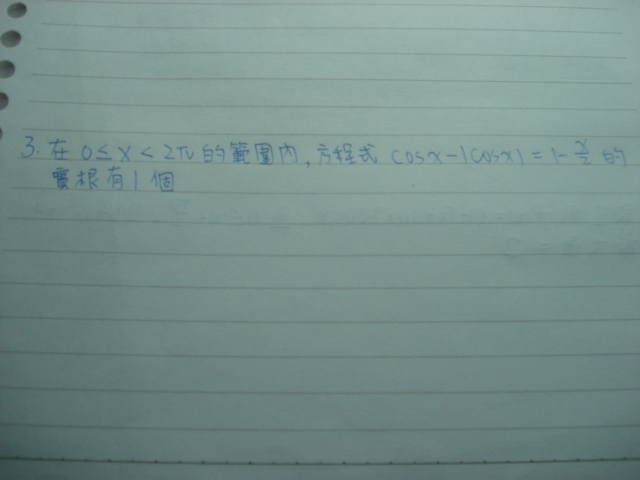 3. 在 0 ≤ x < 2π 的範圍內, 方程式 cosx-|cosx| = 1- x/2 的
實根有1個